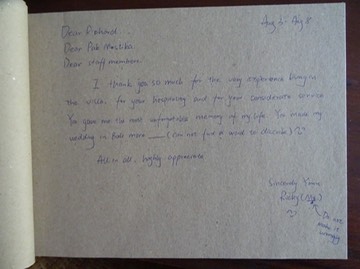 Aug 6 - Aug 8
Dear
Dear Pak
Dear staff members
I thank you so much for the
the villa. for your hospitality and for your considerate service
You gave me the most unforgettable memory of my life. You made my
wedding in Bali more ____ (can not find a word to describe)
All in all, highly appreciated
Sincerely Yours
Ruby